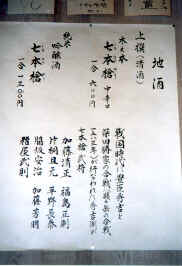 地酒
上撰(清酒)
木之本
七本槍 中辛口
一合 六〇〇円
純米
吟醸酒
七本槍
一合 一三〇〇円
戦国時代に豊臣秀吉と
柴田勝家の合戦、賤ヶ岳の合戦
七本槍 武将
加藤清正 福島正則
片桐且元 平野長泰
脇坂安治 加藤嘉明
糟屋武則